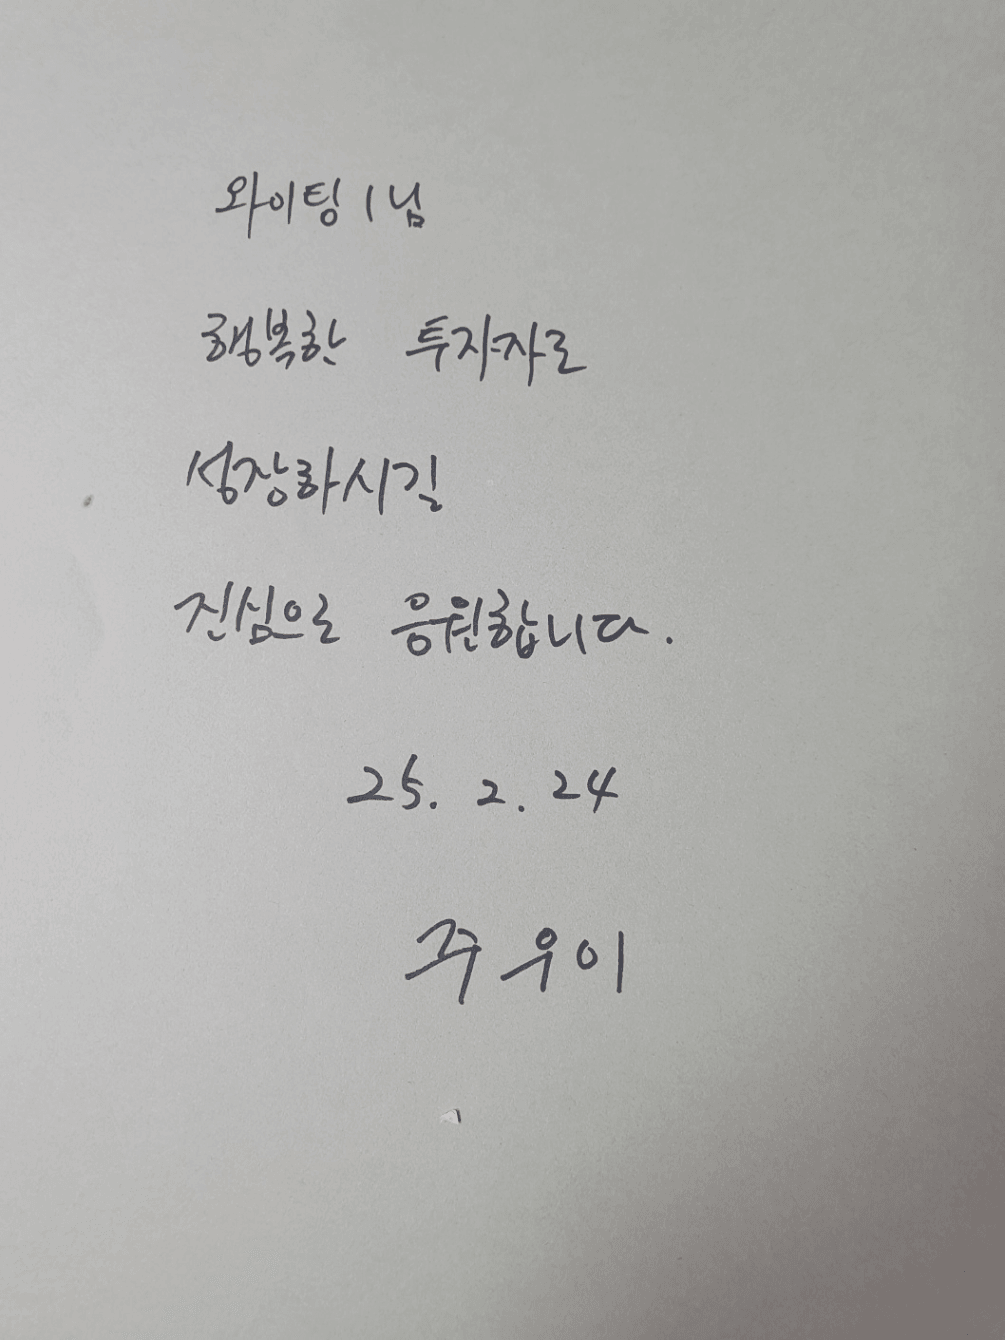 와이팅 1님
행복한 투자자로
성장하시길
진심으로 응원합니다.
25. 2. 24
주우이